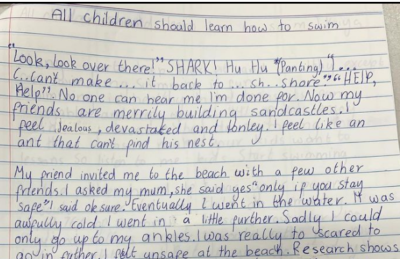 All children should learn how to swim
"Look, Look over there!" SHARK! Hu Hu "(Panting)"!...
C..Cant make ... it back to ... sh.. share" "HElp,
Help". No one can hear me I'm done for. Now my
friends are merrily building sandcastles. I
feel Jealous, devastaked and lonley. I feel like an
ant that can't find his nest.
My friend invited me to the beach with a few other
friends. I asked my mum, she said yes "only if you stay
"safe" I said ok sure. Eventually I went in the water. It was
awfully cold. I went in a little further. Sadly I could
only go up to my ankles. I was really to scared to
go in further. I felt unsafe at the beach. Research shows